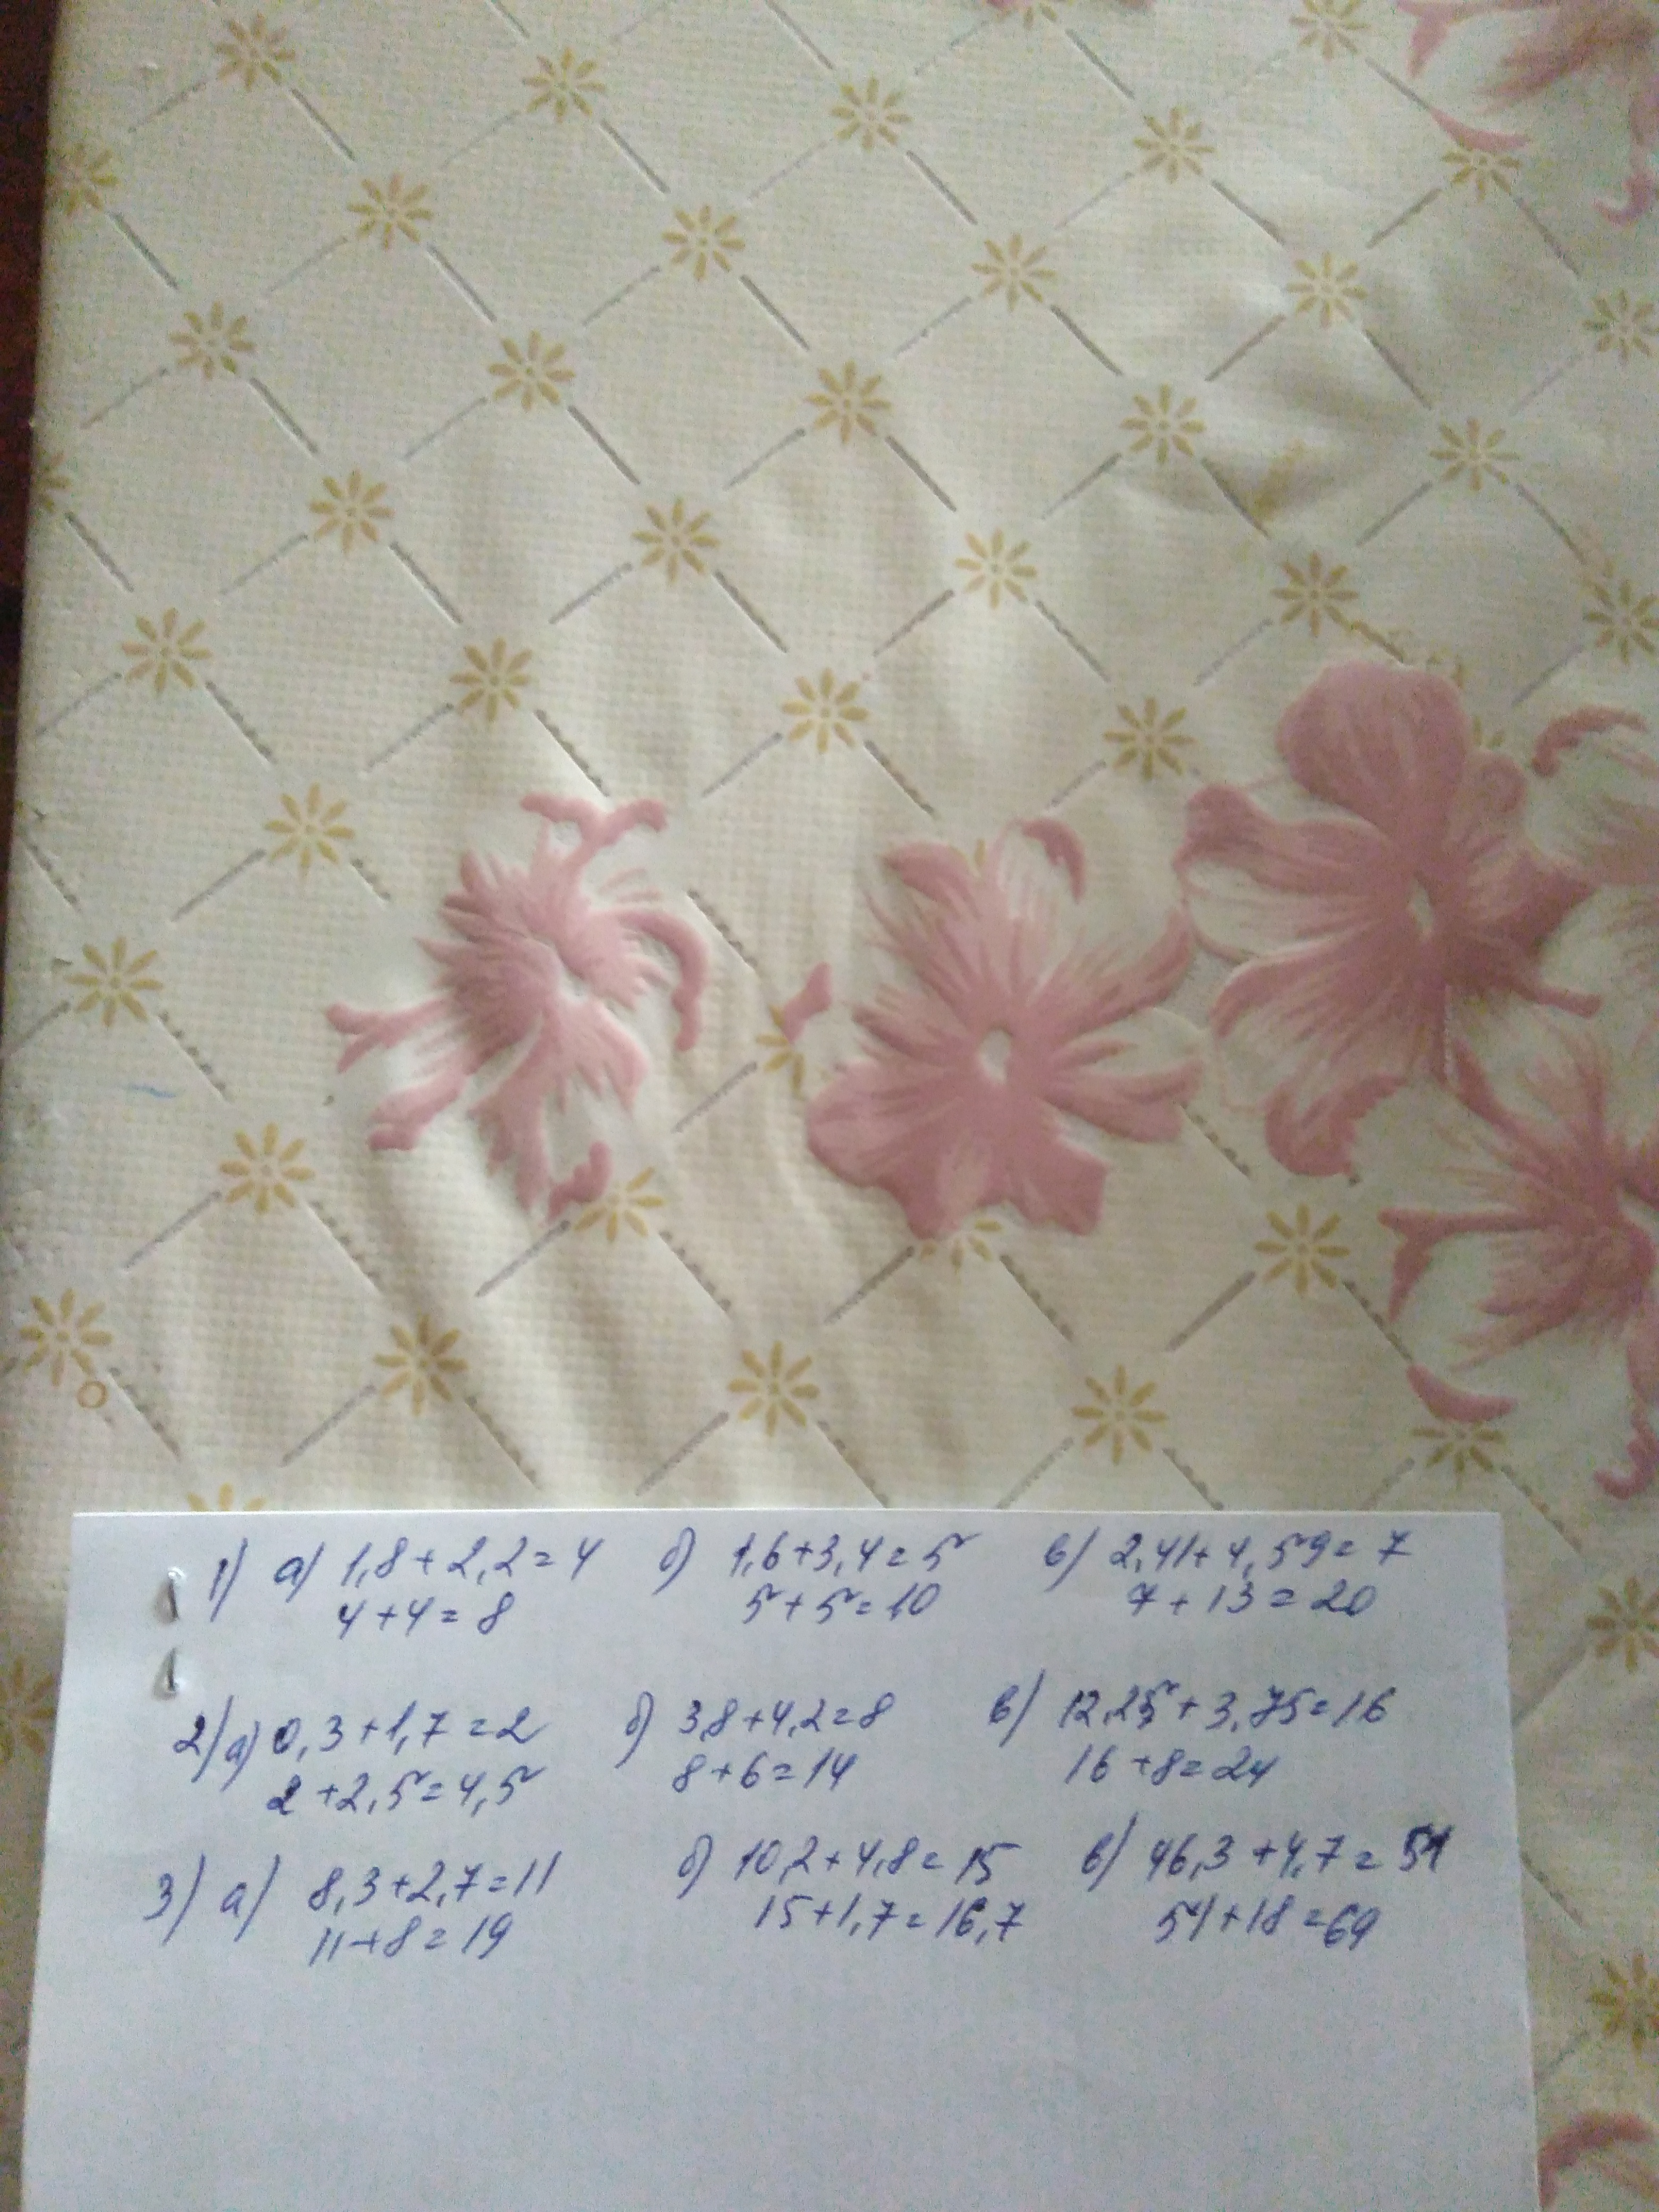 1) а) 1,8+2,2=4 б) 1,6+3,4=5 в) 2,41+4,59=7
4+4=8 5+5=10 7+13=20
2) а) 0,3+1,7=2 б) 3,8+4,2=8 в) 12,25+3,75=16
2+2,5=4,5 8+6=14 16+8=24
3) а) 8,3+2,7=11 б) 10,2+4,8=15 в) 46,3+4,7=51
11+8=19 15+1,7=16,7 51+18=69